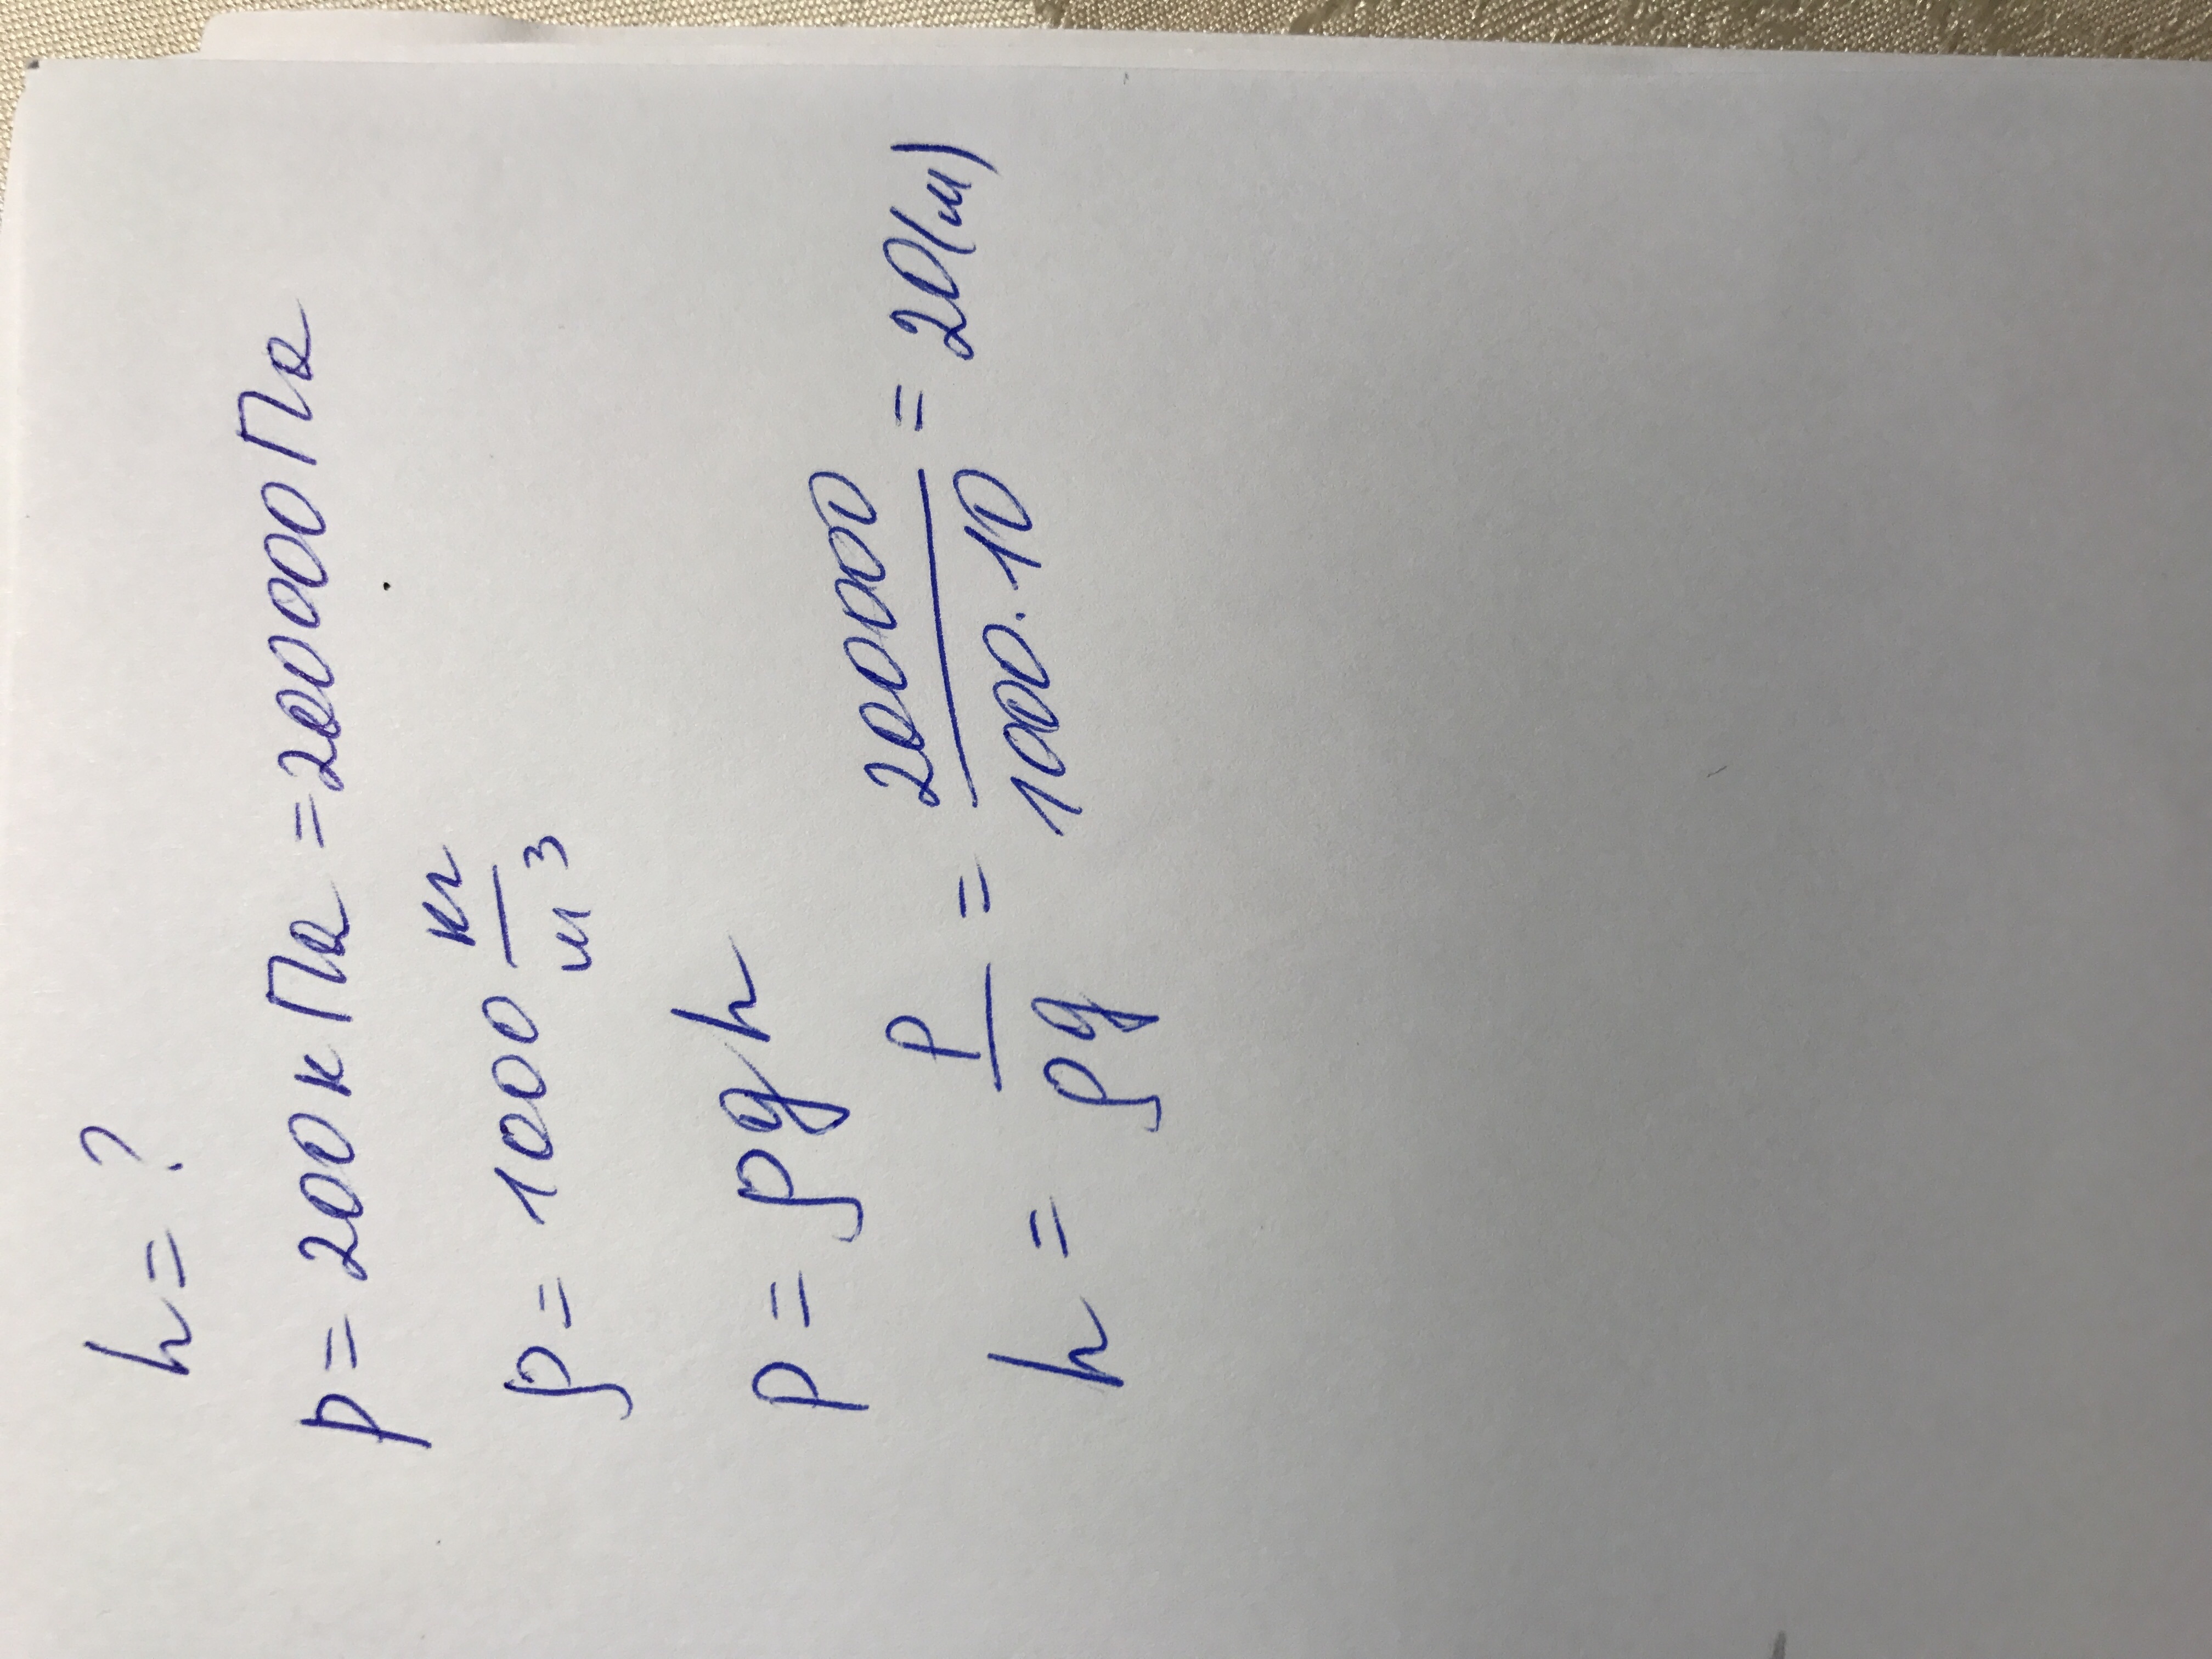 h = ?
p = 200 кПа = 200000 Па
ρ = 1000 кг/м³
p = ρgh
h = p/ρg = 200000/1000·10 = 20(м)